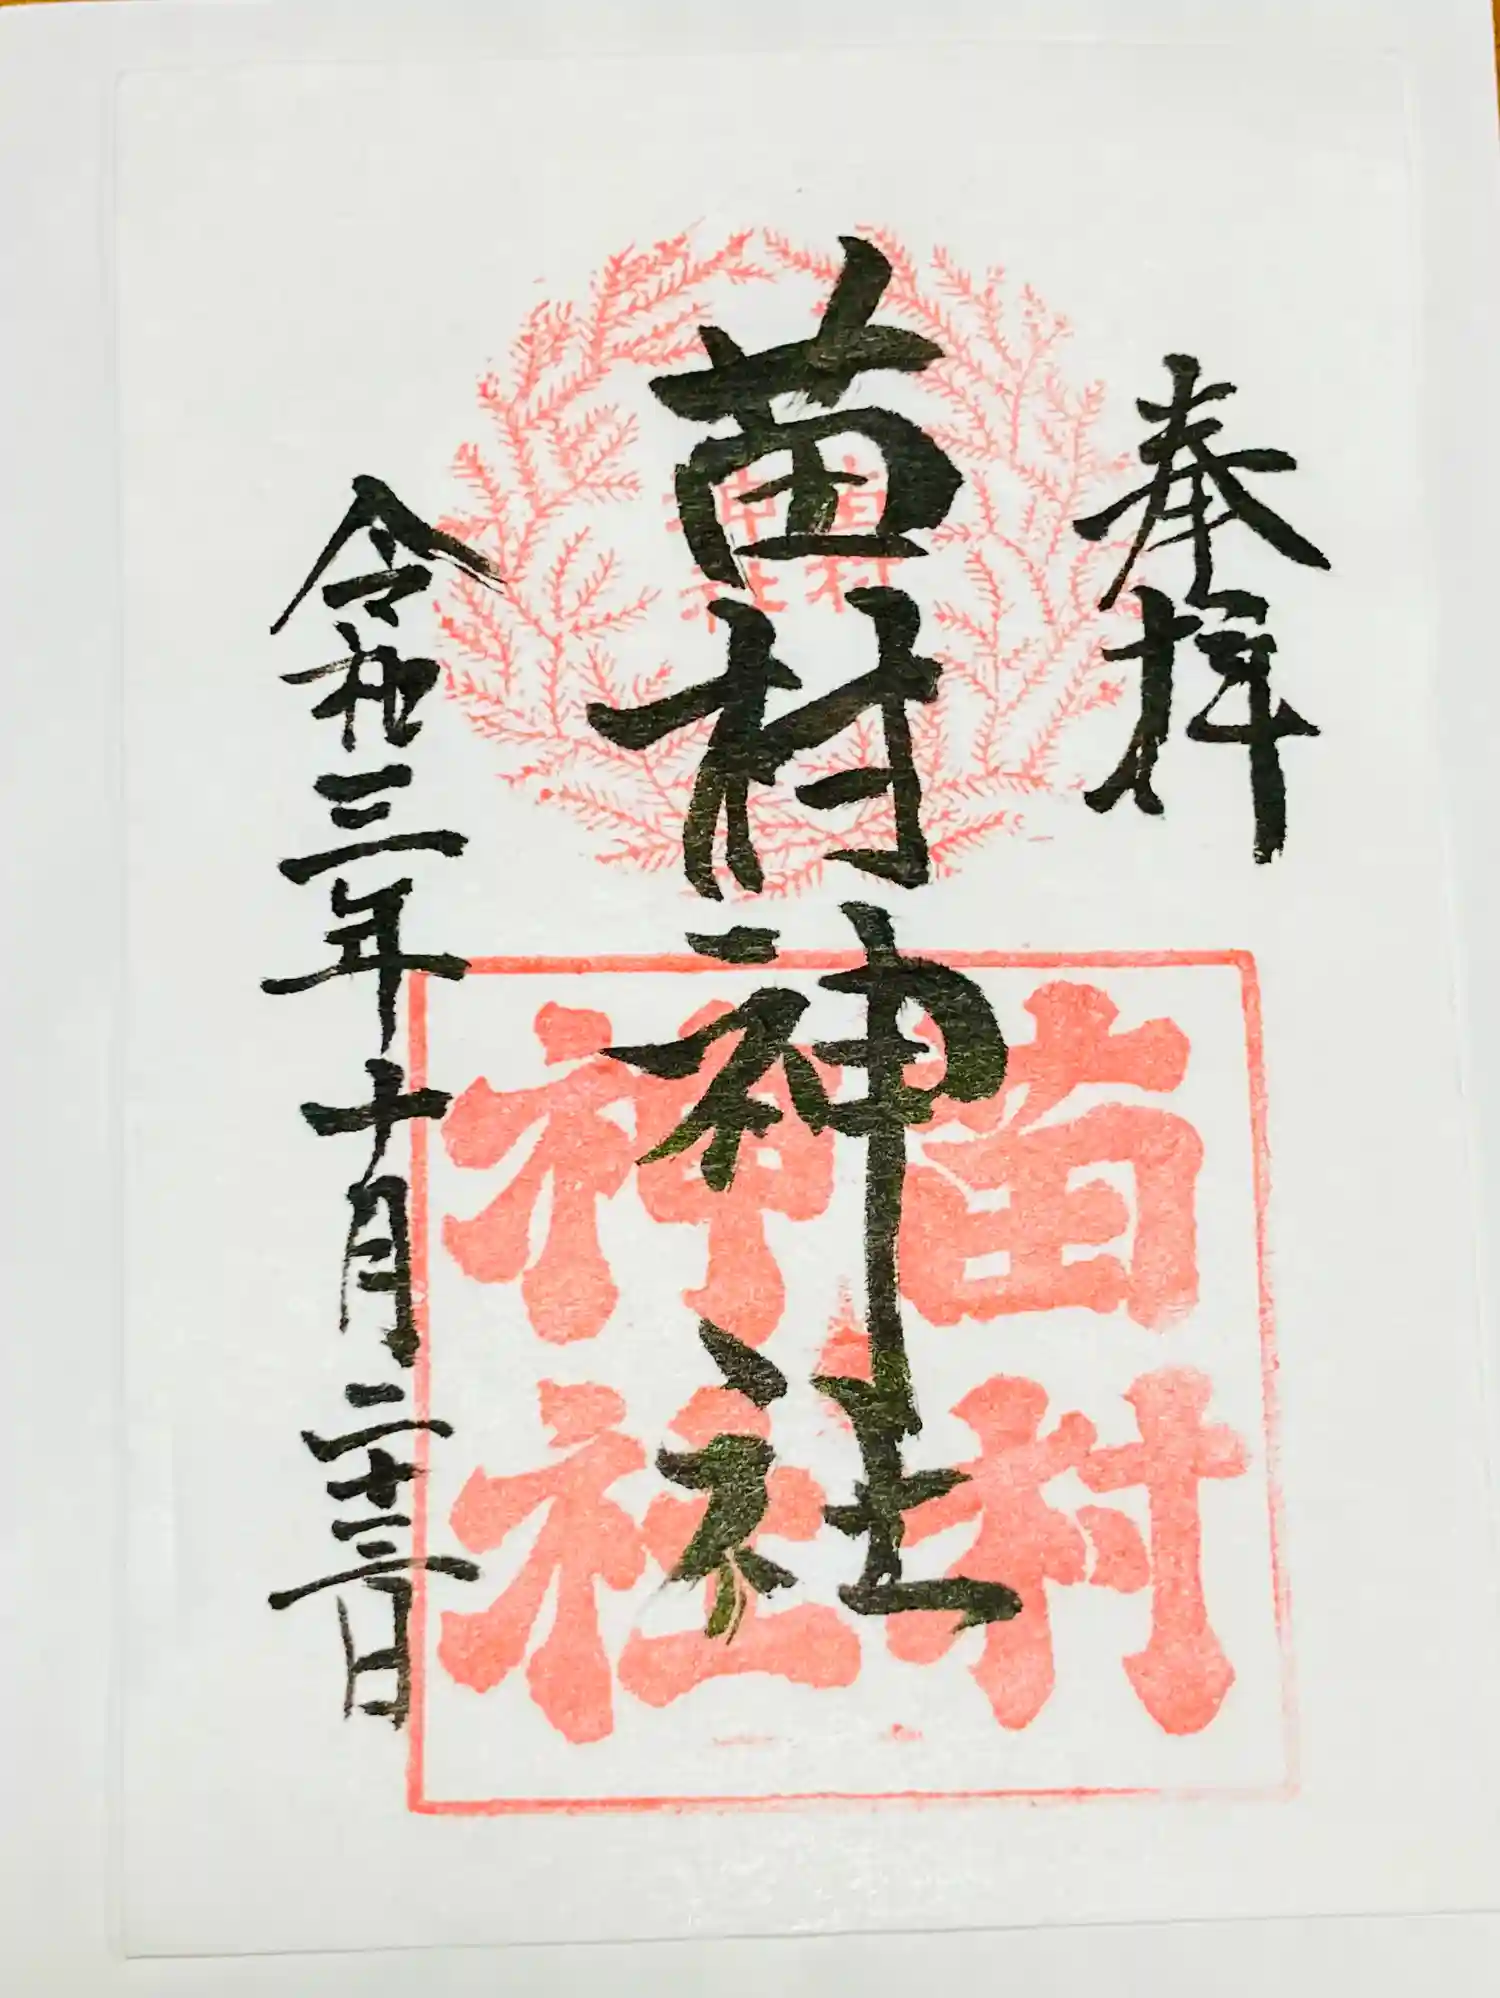 奉拝
苗村神社
苗村
神社
苗村
神社
令和三年十月二十三日